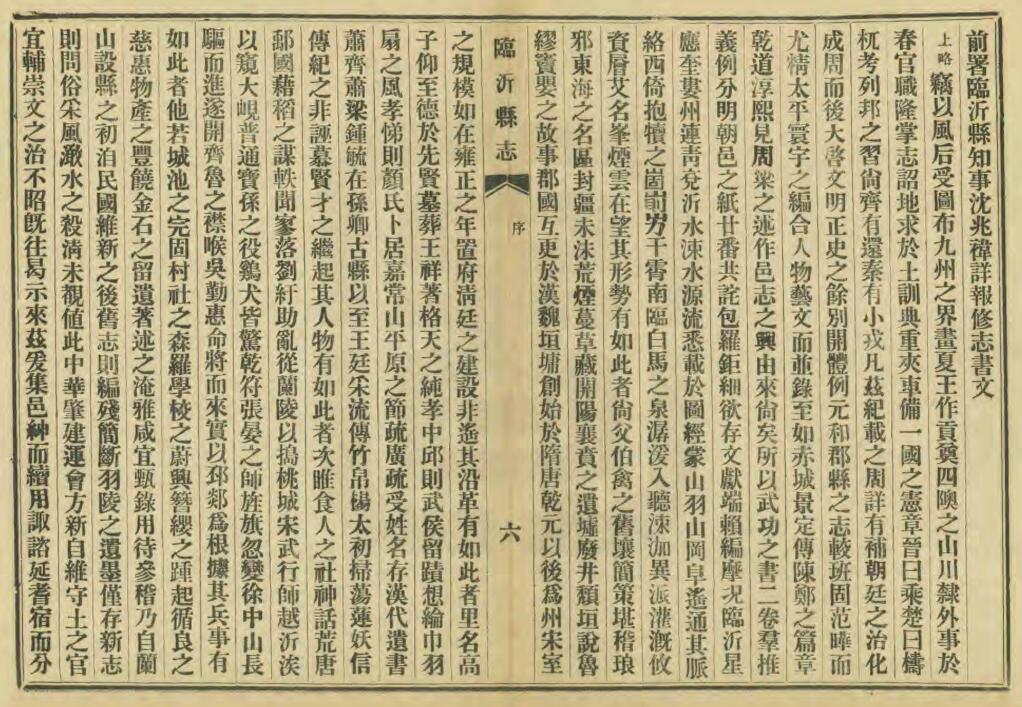 前署臨沂縣知事沈兆禕詳報修志書文
上略竊以風后受圖布九州之界畫夏王作貢奠四隩之山川隸外事於
春官職隆掌志詔地求於土訓典重夾車備一國之憲章晉曰乘楚曰檮
杌考列邦之習尙齊有還秦有小戎凡茲紀載之周詳有補朝廷之治化
成周而後大啓文明正史之餘別開體例元和郡縣之志較班固范曄而
尤精太平寰宇之編合人物藝文而並錄至如赤城景定傳陳鄭之篇章
乾道淳熙見周梁之述作邑志之興由來尙矣所以武功之書二卷羣推
義例分明朝邑之紙廿番共詫包羅鉅細欲存文獻端賴編摩況臨沂星
應奎婁州連靑兗沂水涑水源流悉載於圖經蒙山羽山岡阜遙通其脈
絡西倚抱犢之崮崱屴干霄南臨白馬之泉潺湲入聽涑泇異派灌漑攸
資層艾名峯煙雲在望其形勢有如此者尙父伯禽之舊壤簡策堪稽琅
邪東海之名區封疆未沫荒煙蔓草藏開陽襄賁之遺墟廢井頹垣說魯
繆竇嬰之故事郡國互更於漢魏垣墉創始於隋唐乾元以後爲州宋室
臨沂縣志
序
六
之規模如在雍正之年置府淸廷之建設非遙其沿革有如此者里名高
子仰至德於先賢墓葬王祥著格天之純孝中邱則武侯留蹟想綸巾羽
扇之風孝悌則顏氏卜居嘉常山平原之節疏廣疏受姓名存漢代遺書
蕭齊蕭梁鍾毓在孫卿古縣以至王廷采流傳竹帛楊太初掃蕩蓮妖信
傳紀之非誣慕賢才之繼起其人物有如此者次睢食人之社神話荒唐
鄅國藉稻之謀軼聞寥落劉紆助亂從蘭陵以搗桃城宋武行師越沂涘
以窺大峴普通寶孫之役鷄犬皆驚乾符張晏之師旌旗忽變徐中山長
驅而進遂開齊魯之襟喉吳勤惠命將而來實以邳郯爲根據其兵事有
如此者他若城池之完固村社之森羅學校之蔚興簪纓之踵起循良之
慈惠物產之豐饒金石之留遺著述之淹雅咸宜甄錄用待參稽乃自蘭
山設縣之初洎民國維新之後舊志則編殘簡斷羽陵之遺墨僅存新志
則問俗采風瀲水之殺淸未覩値此中華肇建運會方新自維守土之官
宜輔崇文之治不昭旣往曷示來茲爰集邑紳而續用諏諮延耆宿而分